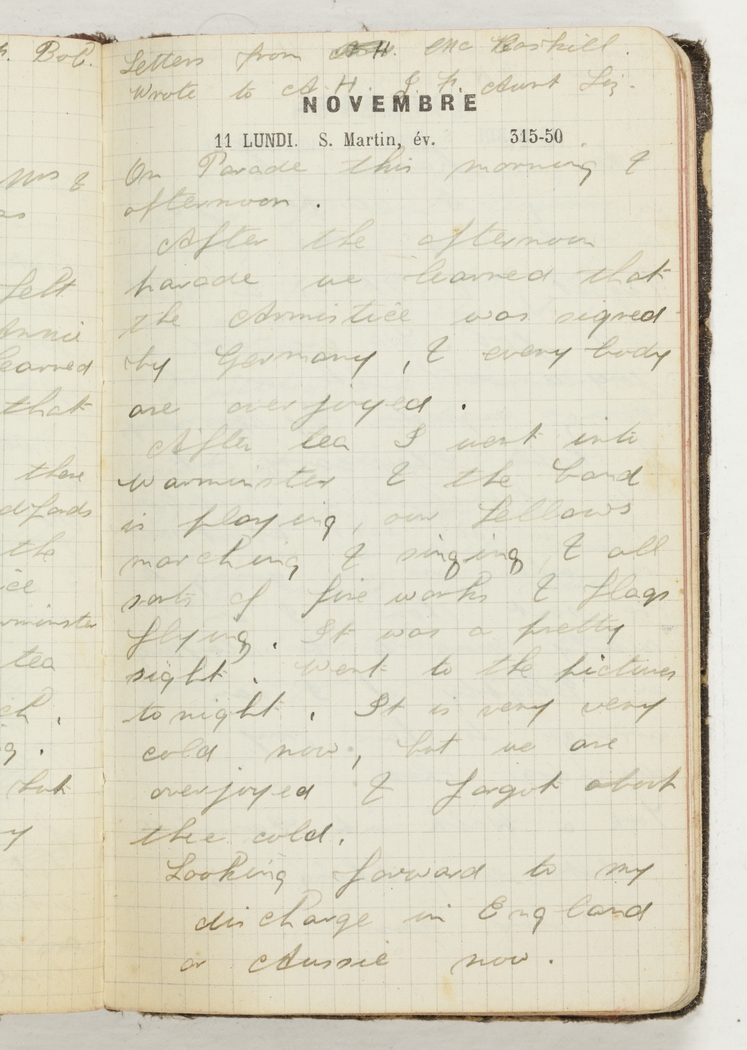 Letters from A.H. Mc Kaskill.
Wrote to A.H. J.F. Aunt Liz.
NOVEMBRE
11 LUNDI. S. Martin, év. 315-50
On Parade this morning &
afternoon.
After the afternoon
parade we learned that
the Armistice was signed
by Germany, & every body
are overjoyed.
After tea I went into
Warminster & the band
is playing, our fellows
marching & singing & all
sorts of fire works & flags
flying. It was a pretty
sight. Went to the pictures
tonight. It is very very
cold now, but we are
overjoyed & forgot about
thee cold.
Looking forward to my
discharge in England
or Aussie now.
Bob.
Mrs &
as
felt
Annie
learned
that
there
the
ice
tea
but